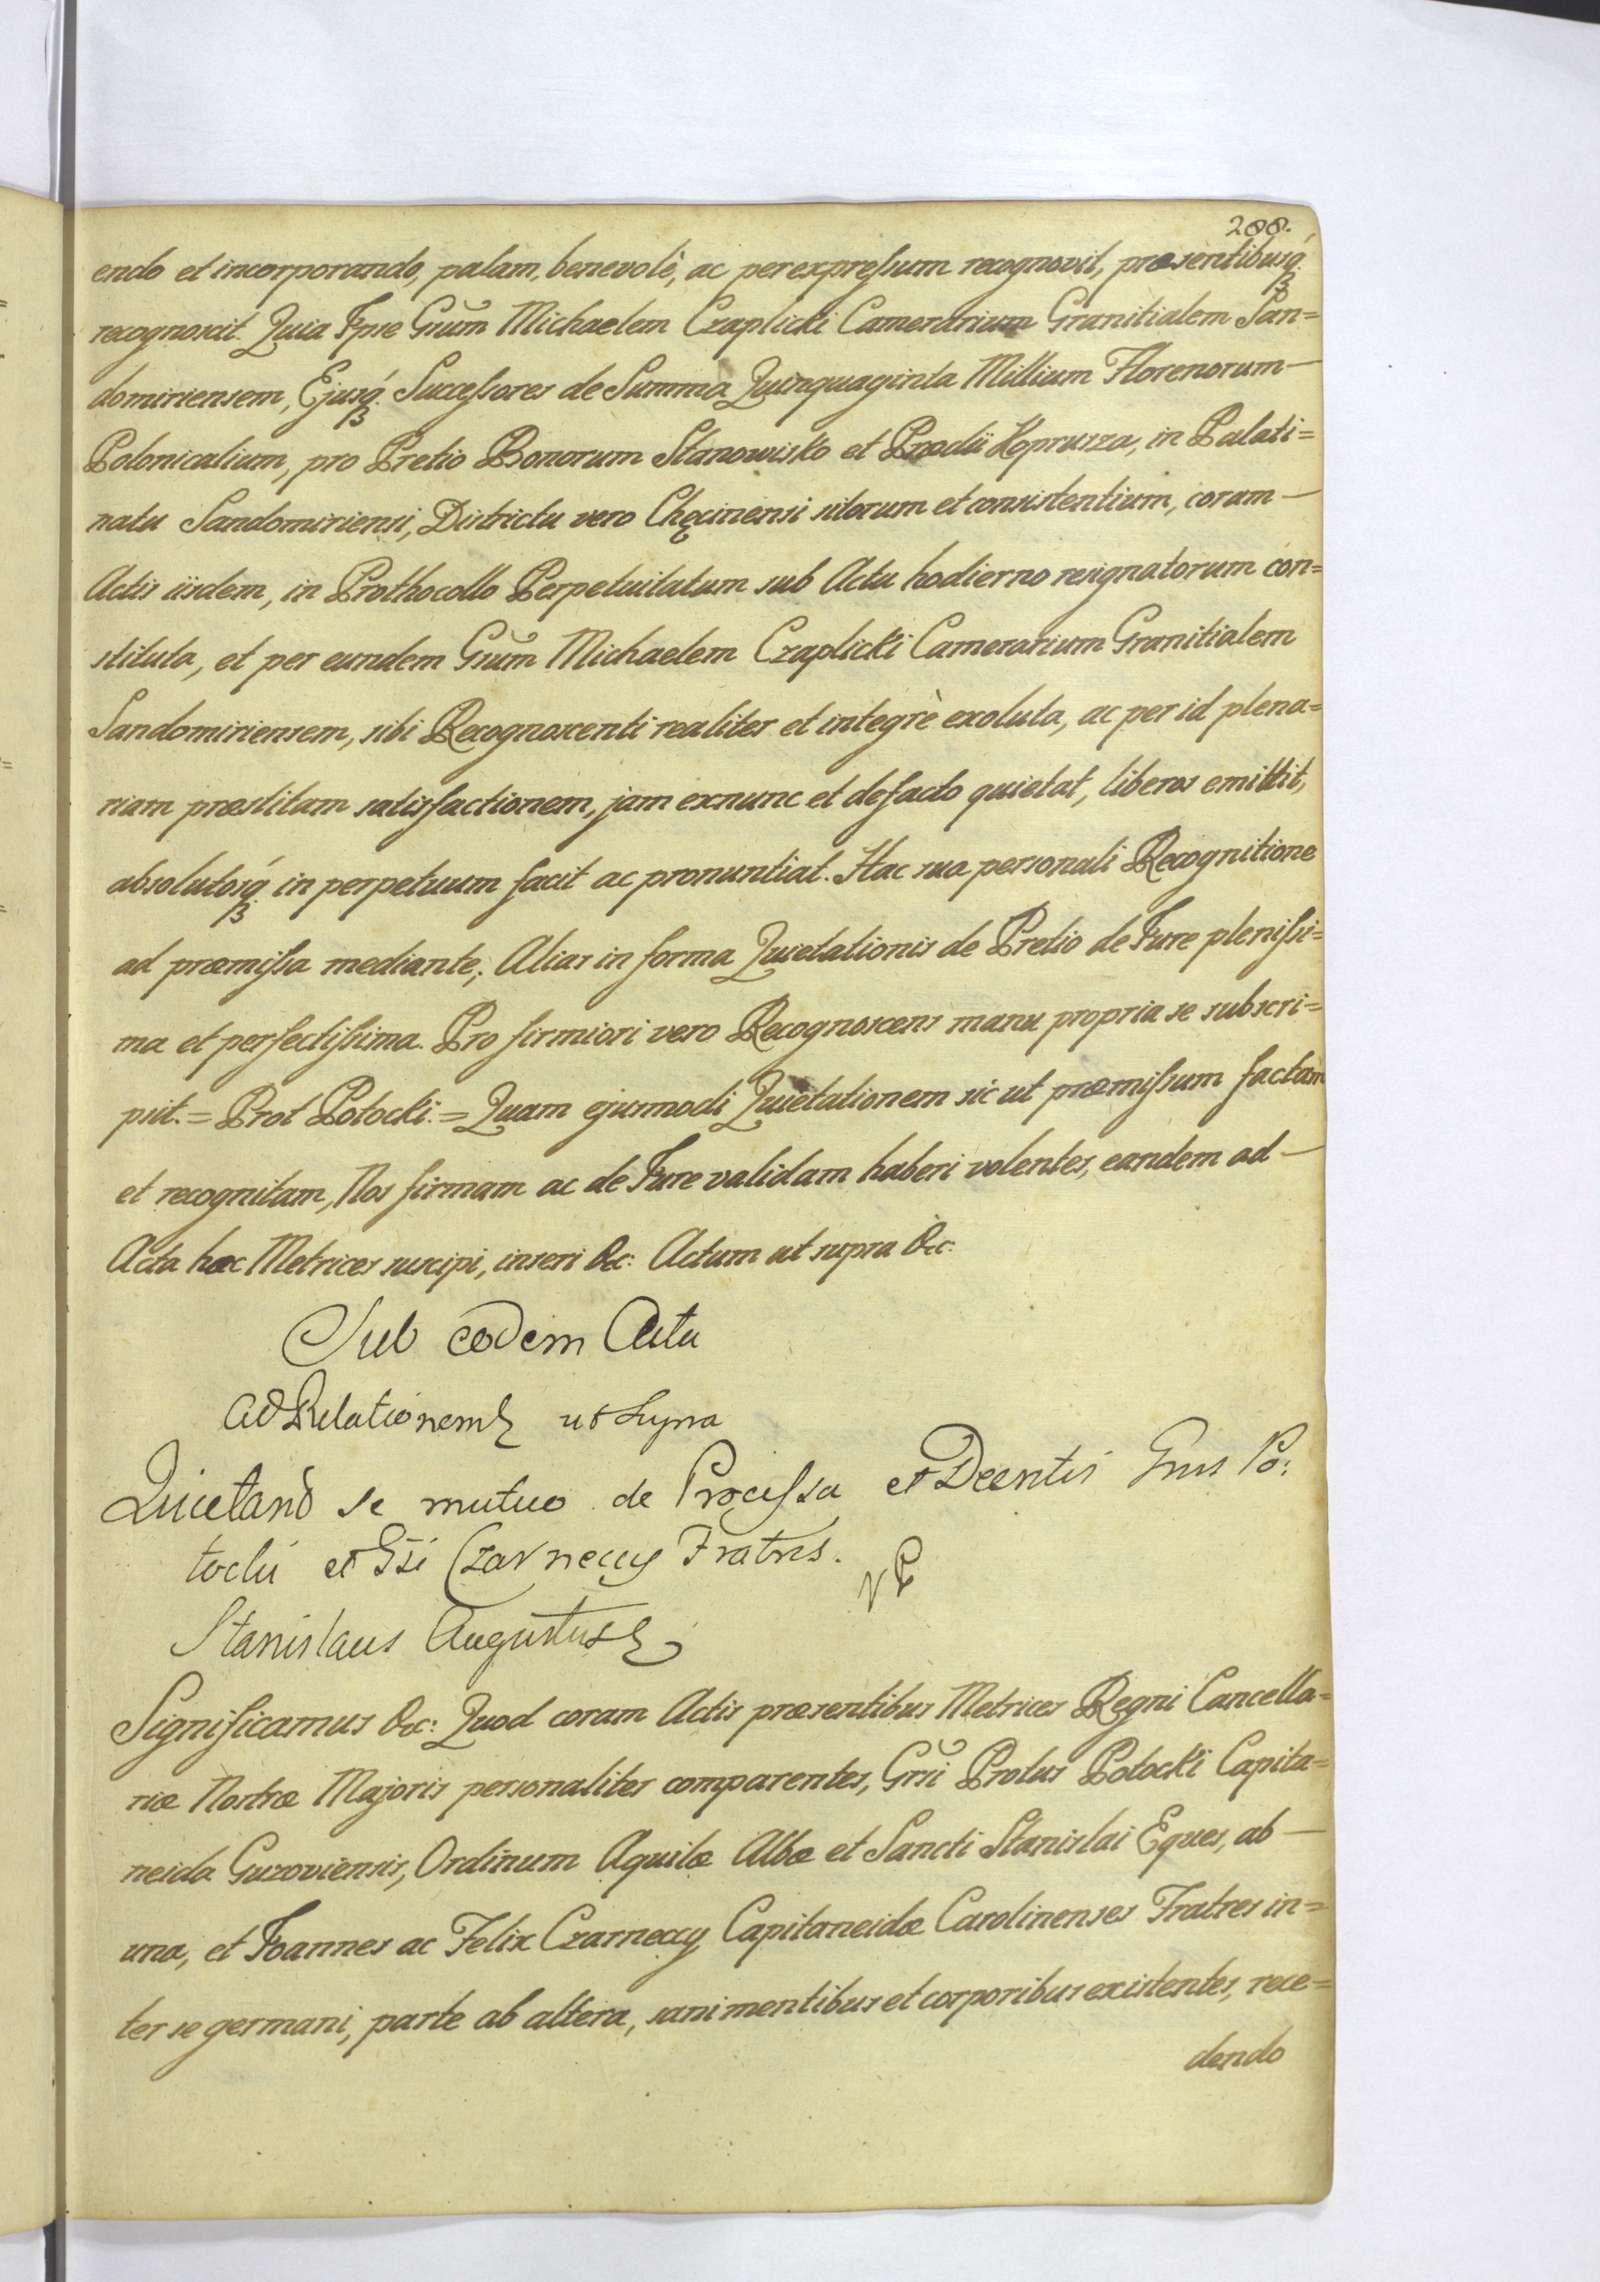 288.
endo et incorporando, palam, benevolè, ac per expreſsum recognovit, præsentibusq́ꝫ
recognoscit. Quia Ipse Grum̃ Michaelem Czaplicki Camerarium Granitialem San=
domiriensem, Ejusq́ꝫ Succeſsores de Summa Quinquaginta Millium Florenorum—
Polonicalium, pro Pretio Bonorum Stanowisko et Prædii Koprusza, in Palati=
natu Sandomiriensi, Districtu vero Chęcinensi sitorum et consistentium, coram—
Actis iisdem, in Prothocollo Perpetuitatum sub Actu hodierno resignatorum con=
stituta, et per eundem Grum̃ Michaelem Czaplicki Camerarium Granitialem
Sandomiriensem, sibi Recognoscenti realiter et integrè exoluta, ac per id plena=
riam præstitam satisfactionem, jam exnunc et defacto quietat, liberos emittit,
absolutosq́ꝫ in perpetuum facit ac pronuntiat. Hac sua personali Recognitione
ad præmiſsa mediante; Alias in forma Quietationis de Pretio de Jure pleniſsi=
ma et perfectiſsima. Pro firmiori vero Recognoscens manu propria se subscri=
psit. = Prot Potocki. = Quam ejusmodi Quietationem sic ut præmiſsum factam
et recognitam, Nos firmam ac de Jure validam haberi volentes, eandem ad—
Acta hæc Metrices suscipi, inseri &c: Actum ut supra &c:
Sub eodem Actu
Ad Relationem ut Supra
Quietand se mutuo de Proceſsu et Decretis Grus Po:
tocki et Gsi Czarneccy Fratres.
Stanislaus Augustus
Significamus &c: Quod coram Actis præsentibus Metrices Regni Cancella=
riæ Nostræ Majoris personaliter comparentes, Grsi Protus Potocki Capita=
neida Guzoviensis, Ordinum Aquilæ Albæ et Sancti Stanislai Eques, ab—
una, et Joannes ac Felix Czarneccy Capitaneidæ Carolinenses Fratres in=
ter se germani, parte ab altera, sani mentibus et corporibus existentes, rece=
dendo